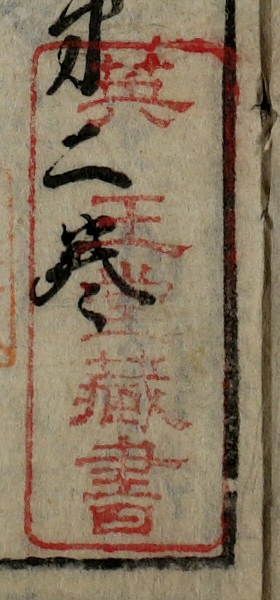 英王堂藏書
第二卷